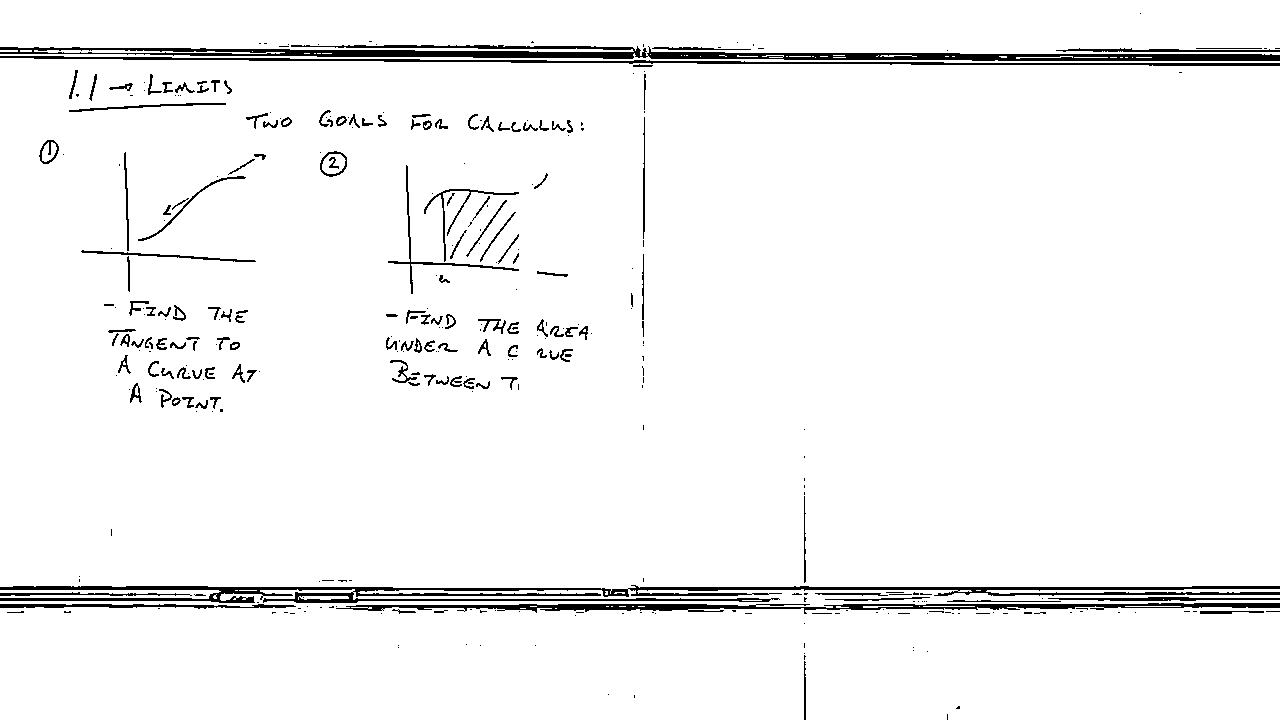 1.1 → LIMITS
TWO GOALS FOR CALCULUS:
①
②
a
- FIND THE
TANGENT TO
A CURVE AT
A POINT.
- FIND THE AREA
UNDER A C RVE
BETWEEN T